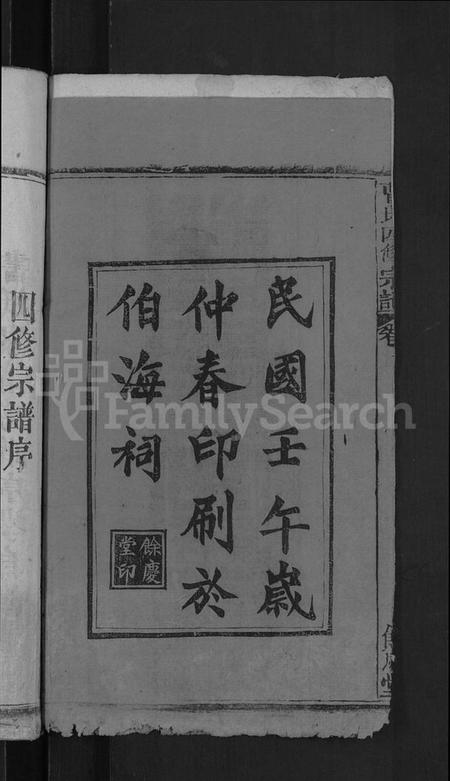 民國壬午歲
仲春印刷於
伯海祠
餘慶
堂印
四修宗譜序
氏四修宗譜
FamilySearch